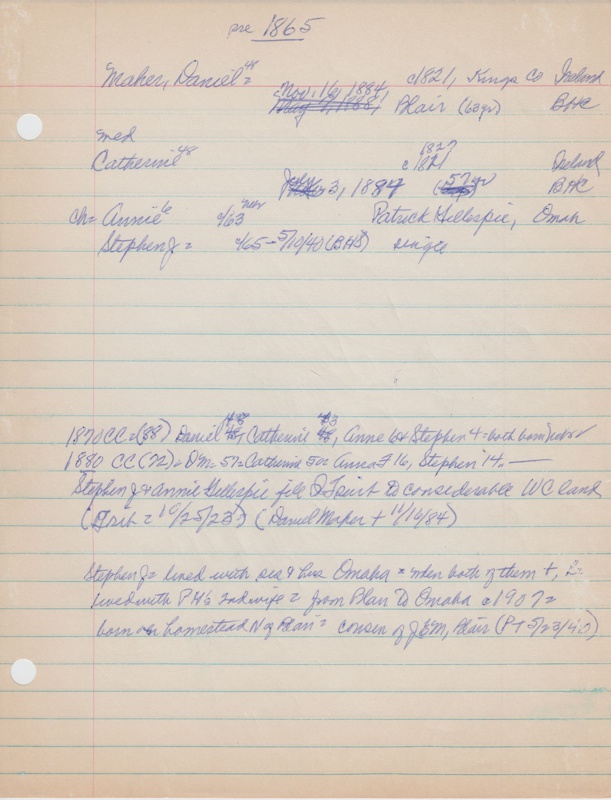 pre 1865
Maher, Daniel 48 = c1821, Kings Co Ireland
Nov. 16, 1884, Blair (63yr) BHC
med
Catherine 48 1827 c1821 Ireland
3, 1884 (57yr BHC
ch = Annie 6 c/63 Patrick Gillespie, Omah
Stephen J = c/65 - 5/10/40 (BHS) single
1870 CC = (88) Daniel 48, Catherine 48, Anne 6 + Stephen 4 = both born Nebr
1880 CC (72) = D M = 57 = Catherine 50 = Anna F 16, Stephen 14 -
Stephen J + Annie Gillespie file to considerable WC land
( = 10/25/23) (Daniel Maher + 11/16/84)
Stephen J = lived with sis & hus Omaha + when both of them +,
lived with PH's 2nd wife = from Blair to Omaha c1907 =
born on homestead N of Blair = cousin of JEM, Blair (PT 5/23/40)